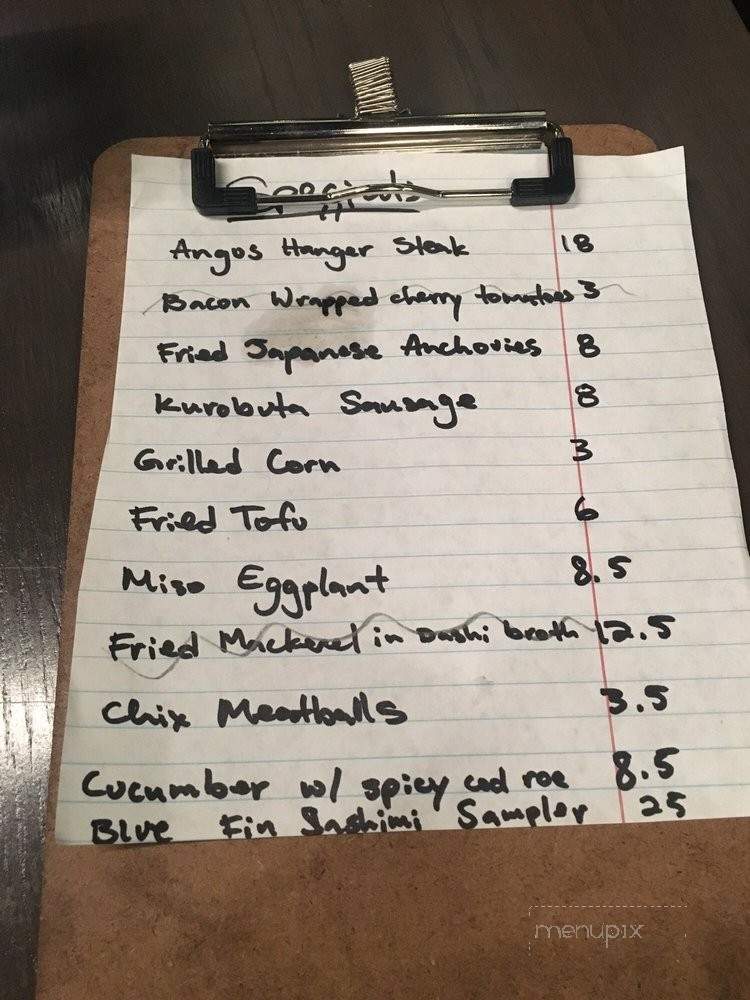 Specials
Angus Hanger Steak 18
Bacon Wrapped cherry tomatoes 3
Fried Japanese Anchovies 8
Kurobuta Sausage 8
Grilled Corn 3
Fried Tofu 6
Miso Eggplant 8.5
Fried Mackerel in Dashi broth 12.5
Chix Meatballs 3.5
Cucumber w/ spicy cod roe 8.5
Blue Fin Sashimi Sampler 25
menupix